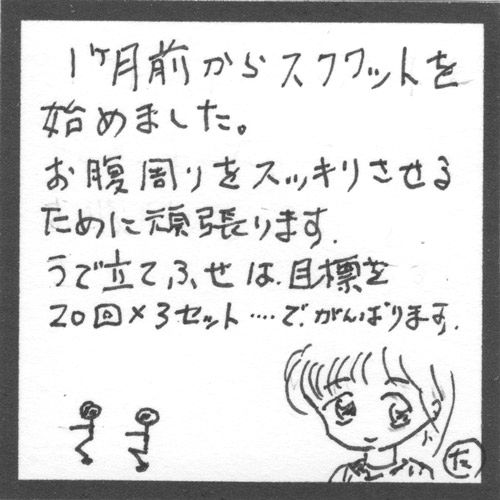 1ケ月前からスクワットを
始めました。
お腹周りをスッキリさせる
ために頑張ります.
うで立てふせは目標を
20回×3セット‥‥でがんばります.
た